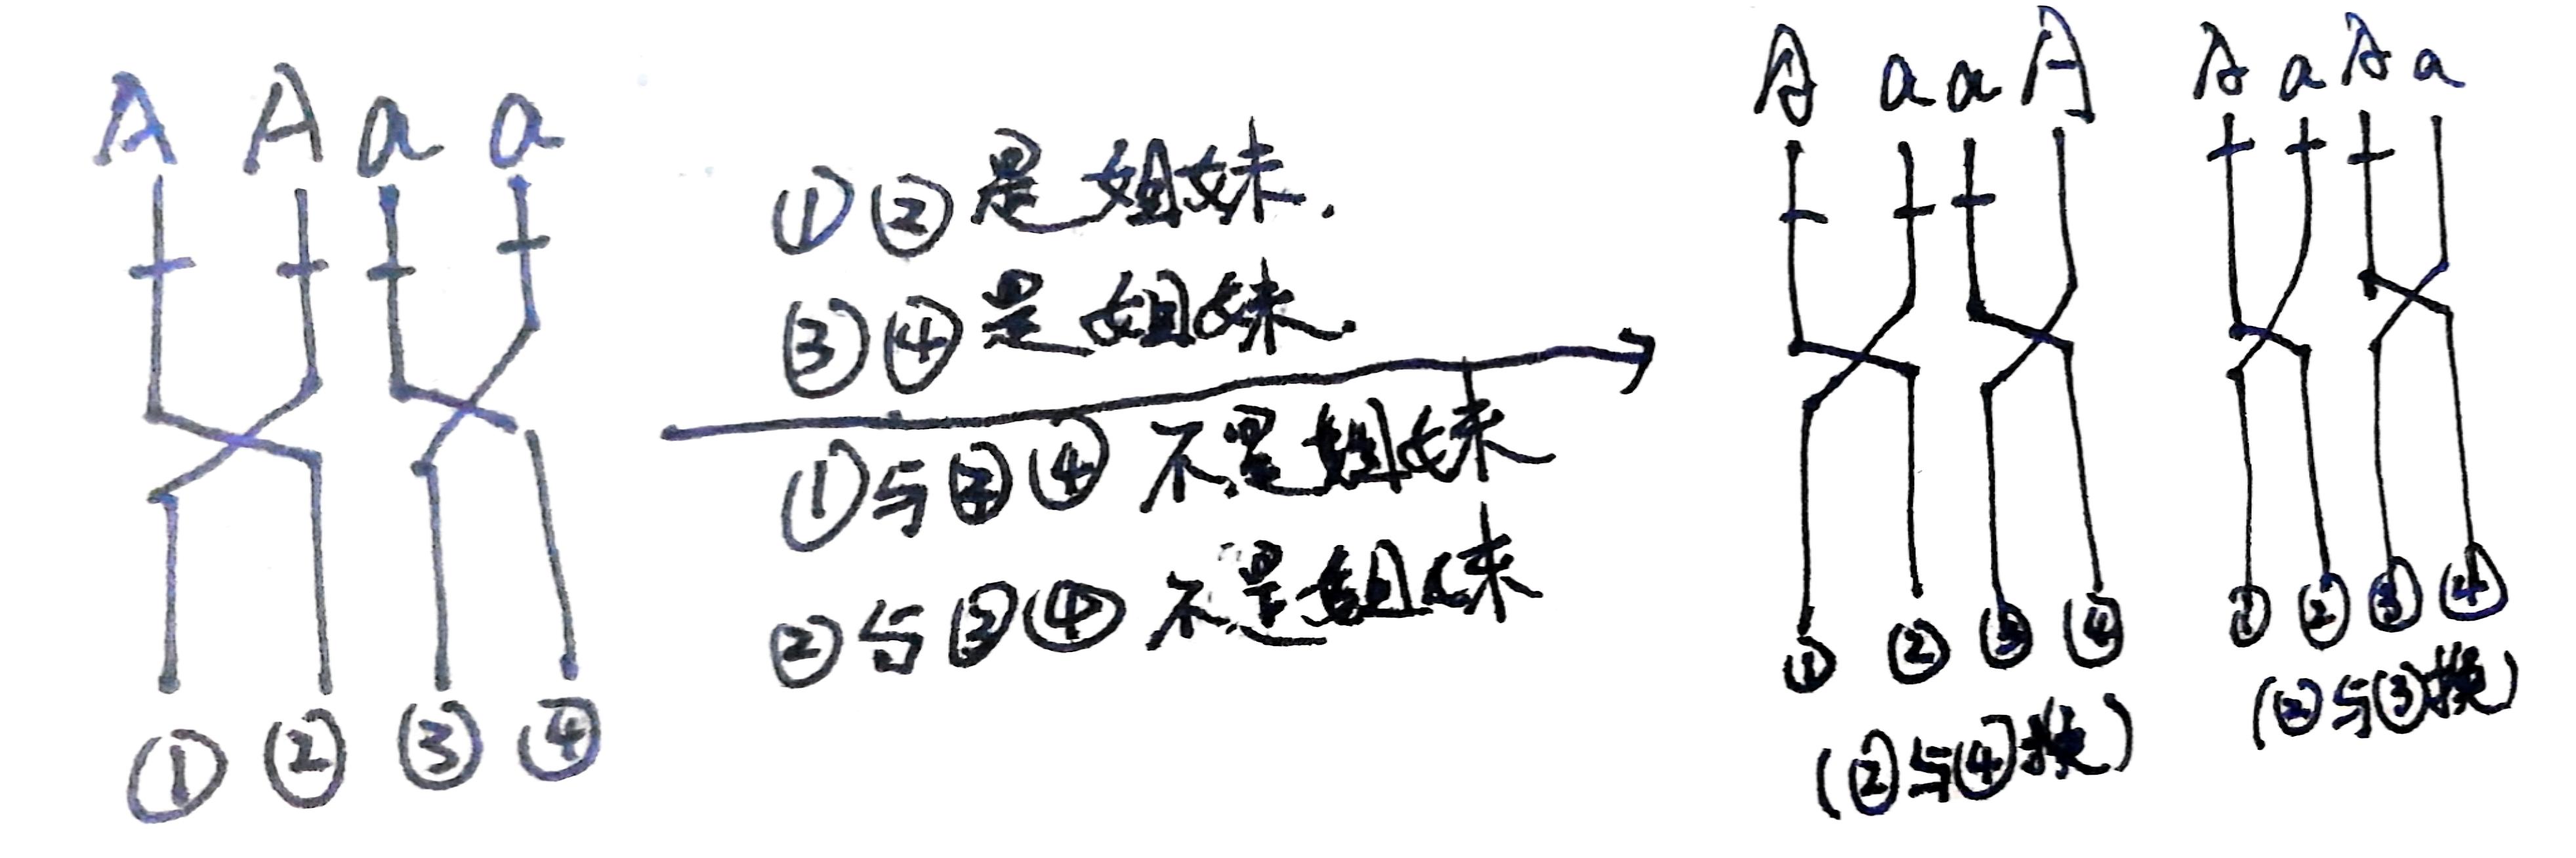 A A a a
①②是姐妹.
③④是姐妹.
①与③④不是姐妹
②与③④不是姐妹
①②③④
A a a A
①②③④
(②与④换)
A a A a
①②③④
(②与③换)